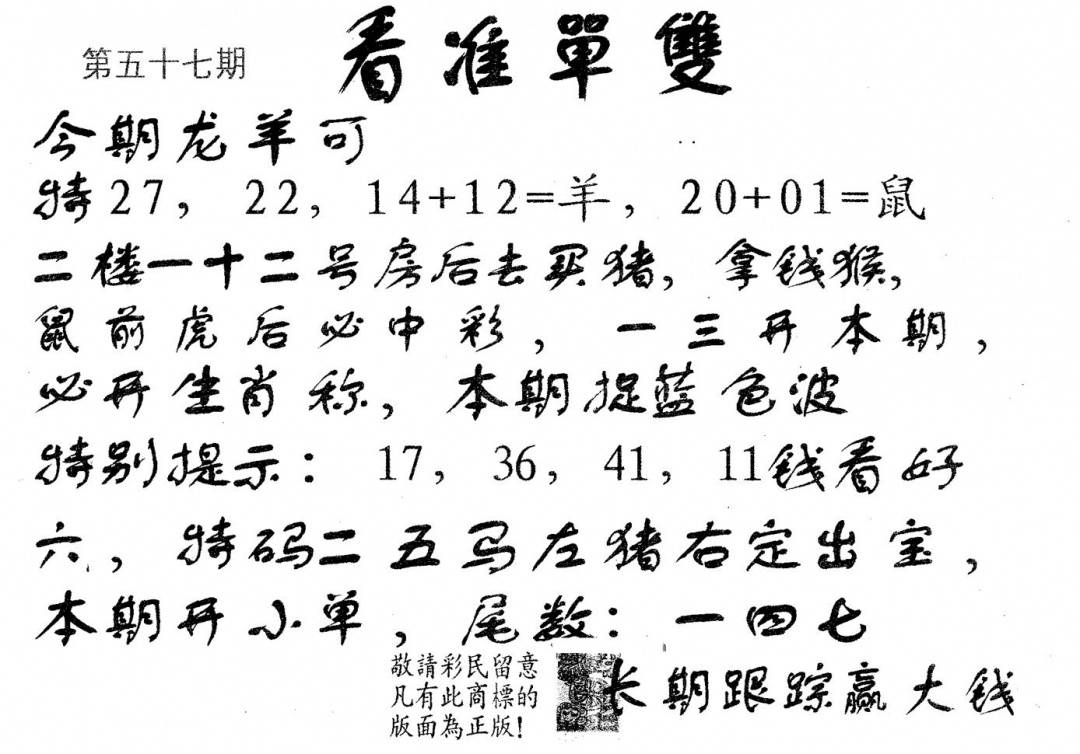 第五十七期
看准單雙
今期龙羊可
特27，22，14+12=羊，20+01=鼠
二楼一十二号房后去买猪，拿钱猴，
鼠前虎后必中彩，一三开本期，
必开生肖称，本期捉蓝色波
特别提示：17，36，41，11钱看好
六，特码二五马左猪右定出宝，
本期开小单，尾数：一四七
敬請彩民留意
凡有此商標的
版面為正版！
长期跟踪赢大钱